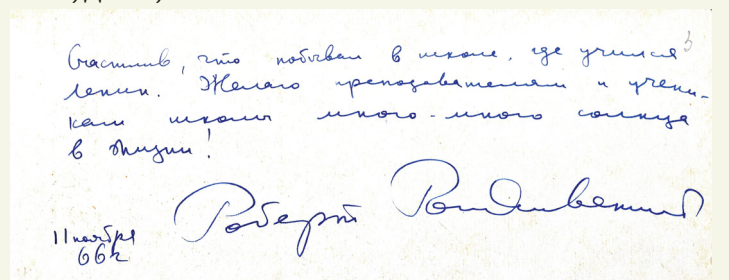 Счастлив, что побывал в школе, где учился
Ленин. Желаю преподавателям и учени-
кам школы много-много солнца
в жизни!
Роберт Рождественский
11 ноября
66г